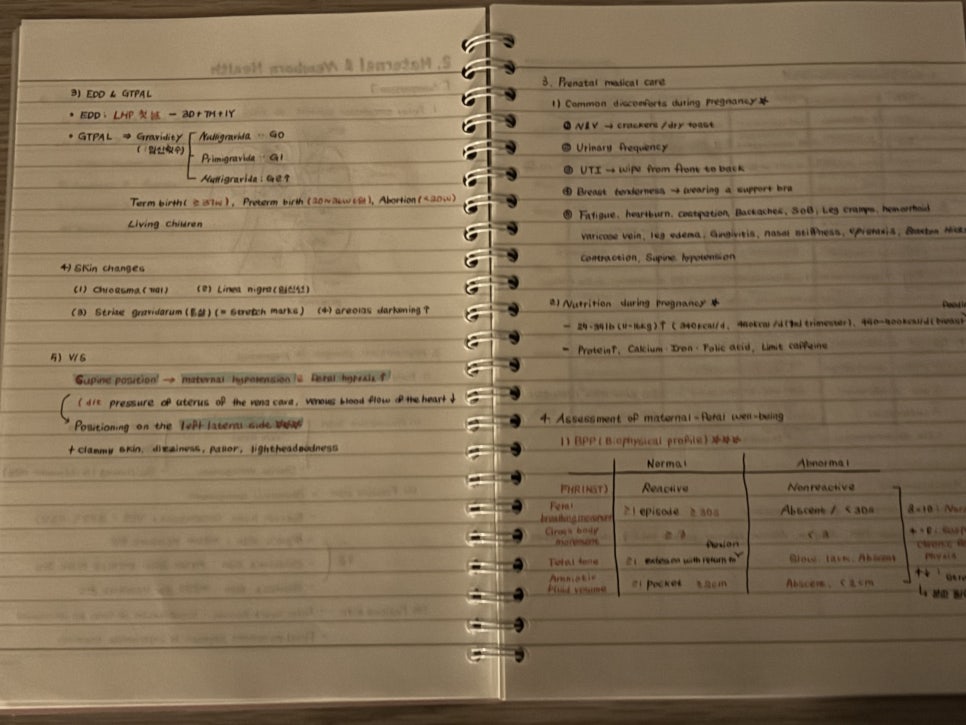 3) EDD & GTPAL
• EDD : LMP 첫날 - 3D + 7M + 1Y
• GTPAL ⇒ Gravidity Nulligravida : G0
(:임신횟수)
Primigravida : G1
Multigravida : G2↑
Term birth (≥37w), Preterm birth (20~36w6d), Abortion (<20w)
Living Children
4) Skin changes
(1) Chloasma (기미) (2) Linea nigra (임신선)
(3) Striae gravidarum (튼살) (= Stretch marks) (4) areolas darkening ↑
5) V/S
Supine position → maternal hypotension & fetal hypoxia ↑
(d/t pressure of uterus of the vena cava, venous blood flow of the heart ↓
Positioning on the left lateral side ★★★
+ clammy skin, dizziness, pallor, lightheadedness
3. Prenatal medical care
1) Common discomforts during pregnancy ★
① N&V → crackers / dry toast
② Urinary frequency
③ UTI → wipe from front to back
④ Breast tenderness → wearing a support bra
⑤ Fatigue, heartburn, constipation, Backaches, SoB, Leg cramps, hemorrhoid
varicose vein, leg edema, Gingivitis, nasal stiffness, epistaxis, Braxton Hicks
contraction, Supine hypotension
2) Nutrition during pregnancy ★
(340kcal/d,
- Protein↑, Calcium · Iron · Folic acid, Limit caffeine
4. Assessment of maternal-fetal well-being
1) BPP (Biophysical profile) ★★★
Normal Abnormal
FHR(NST) Reactive Nonreactive
Fetal breathing movement ≥1 episode ≥30s Abscent / <30s
Gross body movement ≥3 <3
Fetal tone ≥1 extension with return to flexion Slow, Abscent
Amniotic fluid volume ≥1 pocket ≥2cm Abscent, <2cm
8-10 :